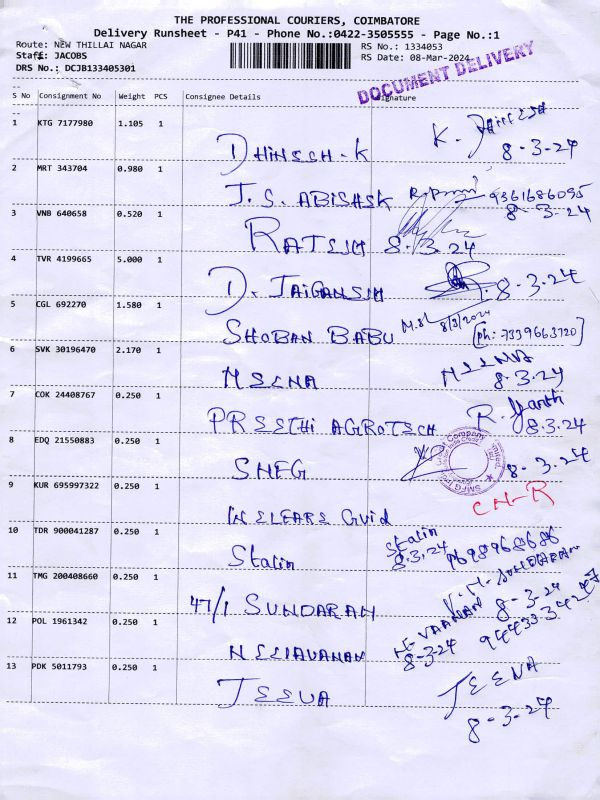 THE PROFESSIONAL COURIERS, COIMBATORE
Delivery Runsheet - P41 - Phone No.:0422-3505555 - Page No.:1
Route: NEW THILLAI NAGAR RS No.: 1334053
Staff: JACOBS RS Date: 08-Mar-2024
DRS No.: DCJB133405301
DOCUMENT DELIVERY
S No Consignment No Weight PCS Consignee Details Signature
1 KTG 7177980 1.105 1
DHINESH-K K. 8-3-24
2 MRT 343704 0.980 1
J.S. ABISHEK 9361686095
8-3-24
3 VNB 640658 0.520 1
RATESH 8.3.24
4 TVR 4199665 5.000 1
D. JAIGANESH 8-3.24
5 CGL 692270 1.580 1
SHOBAN BABU 8/3/2024
[ph:-7339663720]
6 SVK 30196470 2.170 1
MEENA MEENA
8.3.24
7 COK 24408767 0.250 1
PREETHI AGROTECH R.
8.3.24
8 EDQ 21550883 0.250 1
SMFG 8-3.24
9 KUR 695997322 0.250 1
CN-R
10 TDR 900041287 0.250 1
Stalin Stalin
8.3.24 9698968686
11 TMG 200408660 0.250 1
47/1 SUNDARAM 8-3-24
12 POL 1961342 0.250 1
8-3-24
13 PDK 5011793 0.250 1
JEEVA JEEVA
8-3-24